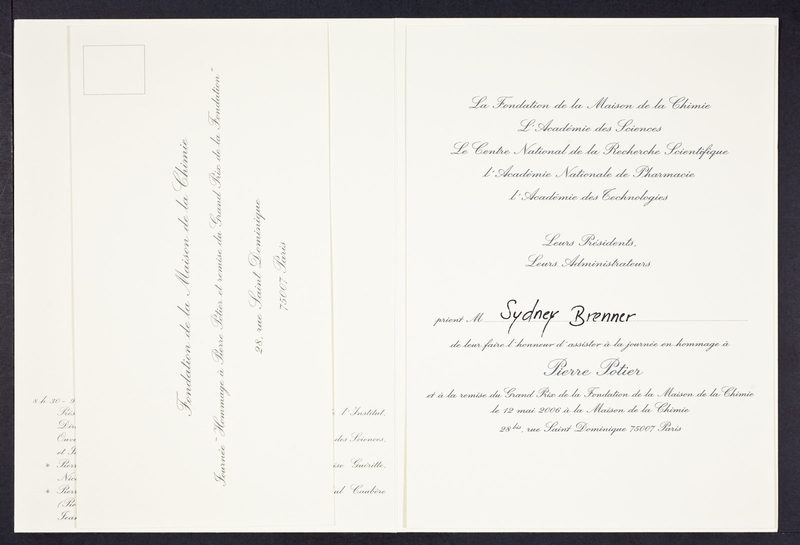 Fondation de la Maison de la Chimie
Journée "Hommage à Pierre Potier et remise du Grand Prix de la Fondation"
28, rue Saint Dominique
75007 Paris
8 h 30 - 9
et
l'Institut,
des Sciences,
Guéritte,
Caubère
La Fondation de la Maison de la Chimie
L'Académie des Sciences
Le Centre National de la Recherche Scientifique
l'Académie Nationale de Pharmacie
l'Académie des Technologies
Leurs Présidents,
Leurs Administrateurs
prient M Sydney Brenner
de leur faire l'honneur d'assister à la journée en hommage à
Pierre Potier
et à la remise du Grand Prix de la Fondation de la Maison de la Chimie
le 12 mai 2006 à la Maison de la Chimie
28 bis, rue Saint Dominique 75007 Paris